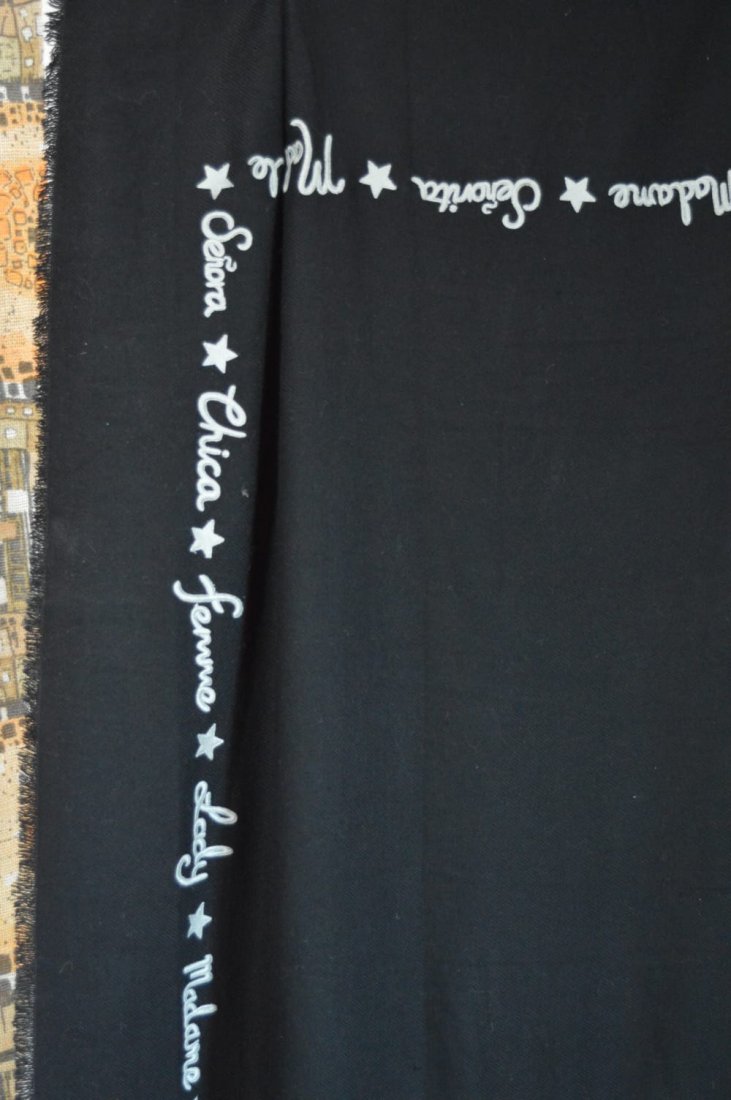 Madame Señorita
Señora Chica femme Lady Madame